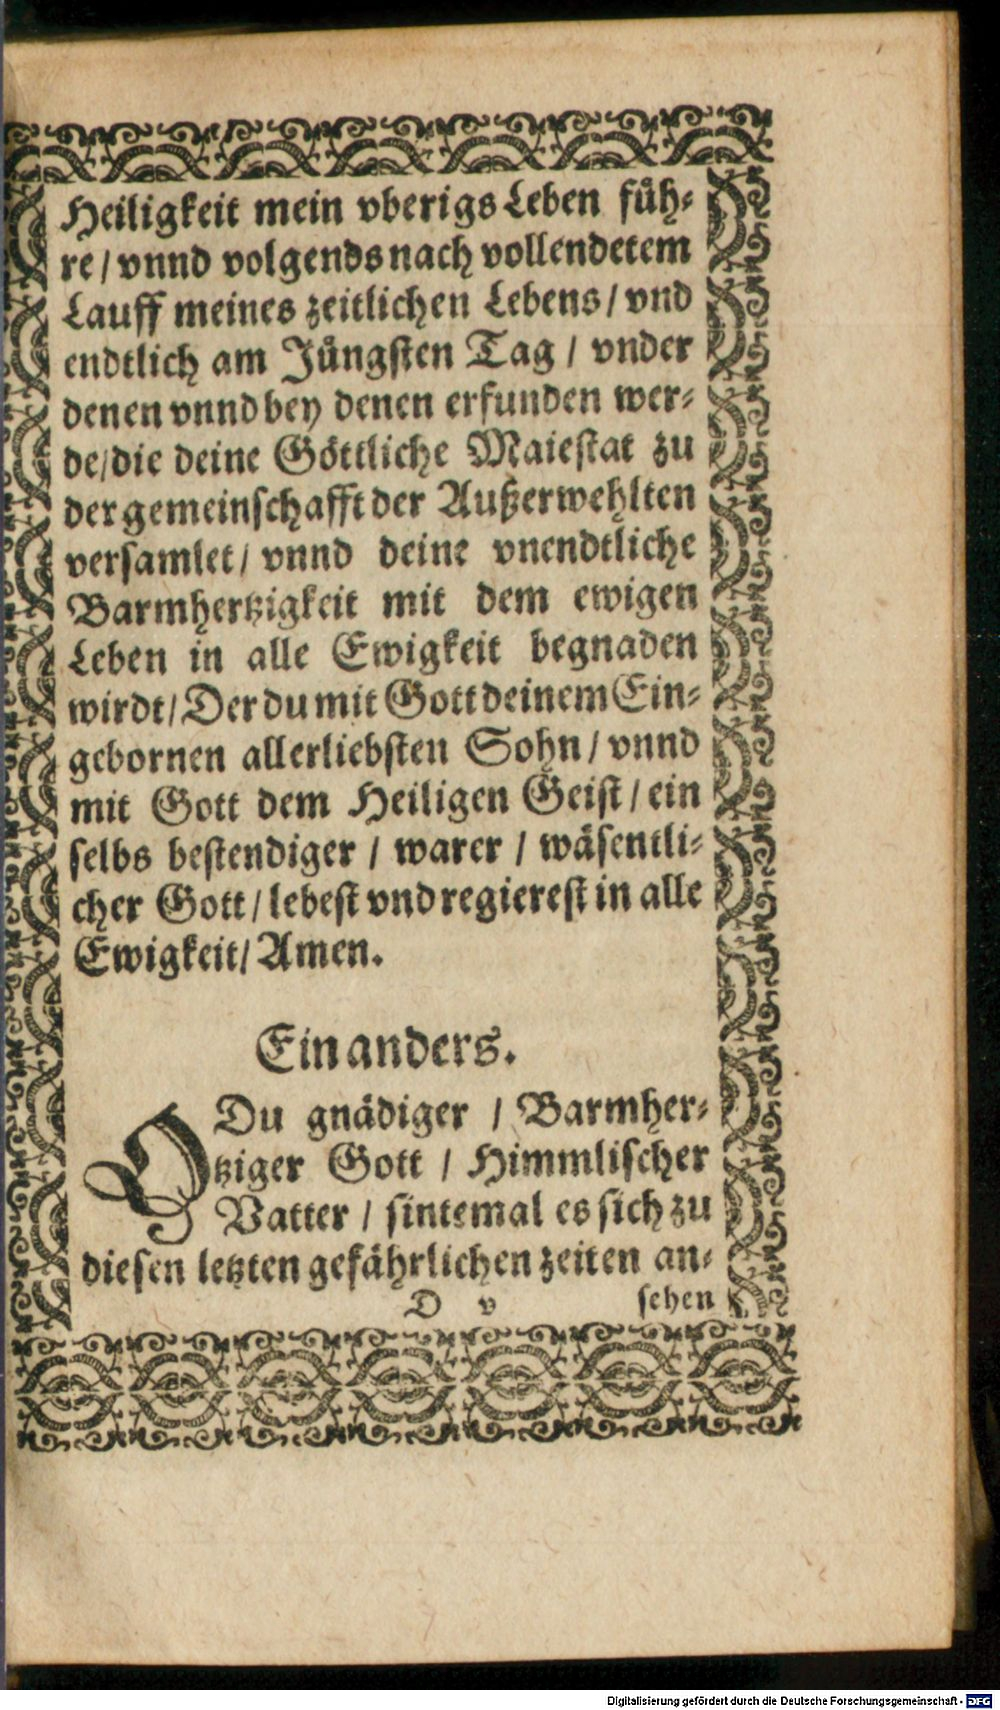 Heiligkeit mein vberigs Leben fuͤh⸗
re / vnnd volgends nach vollendetem
Lauff meines zeitlichen Lebens / vnd
endtlich am Juͤngsten Tag / vnder
denen vnnd bey denen erfunden wer⸗
de / die deine Goͤttliche Maiestat zu
der gemeinschafft der Außerwehlten
versamlet / vnnd deine vnendtliche
Barmhertzigkeit mit dem ewigen
Leben in alle Ewigkeit begnaden
wirdt / Der du mit Gott deinem Ein⸗
gebornen allerliebsten Sohn / vnnd
mit Gott dem Heiligen Geist / ein
selbs bestendiger / warer / wäsentli⸗
cher Gott / lebest vnd regierest in alle
Ewigkeit / Amen.
Ein anders.
O Du gnädiger / Barmher⸗
tziger Gott / Himmlischer
Vatter / sintemal es sich zu
diesen letzten gefährlichen zeiten an⸗
D v sehen
Digitalisierung gefördert durch die Deutsche Forschungsgemeinschaft - DFG